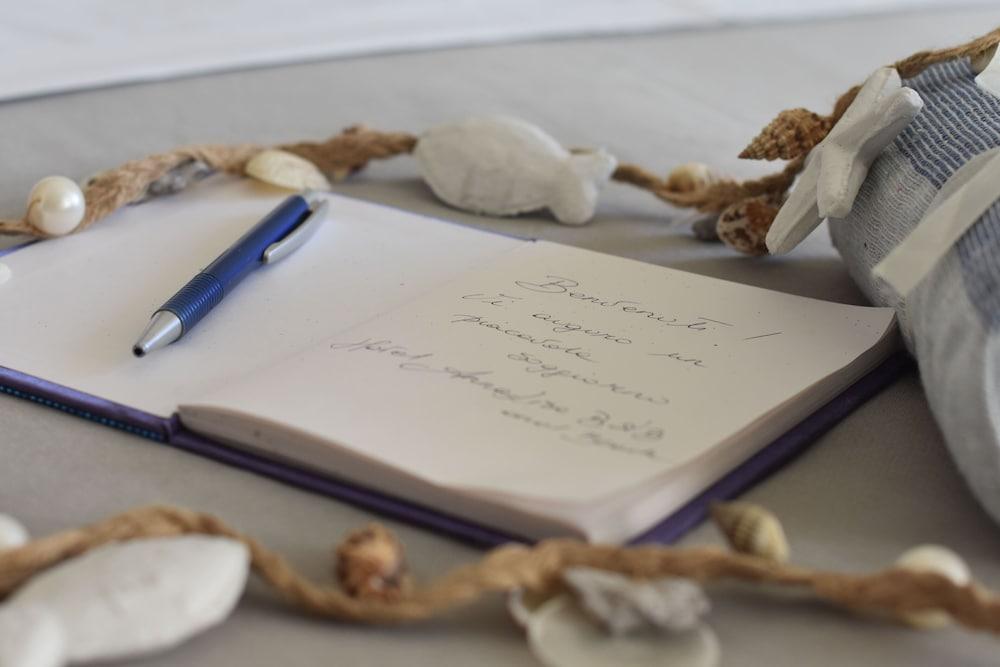 Benvenuti!
Vi auguro un
piacevole
soggiorno
Hotel B&B
and Beach